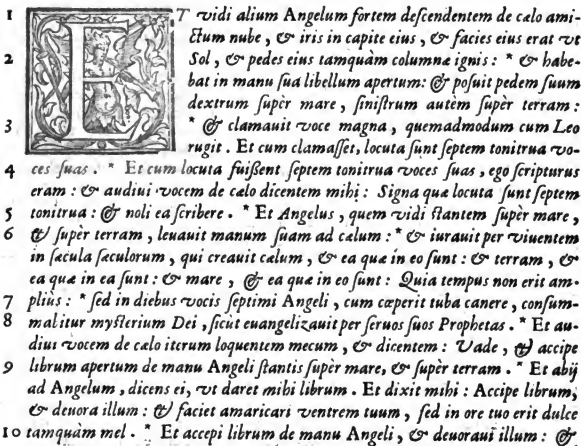 1 ET vidi alium Angelum fortem descendentem de cælo ami-
ctum nube, & iris in capite eius, & facies eius erat vt
2 Sol, & pedes eius tamquàm columnæ ignis: * & habe-
bat in manu sua libellum apertum: & posuit pedem suum
dextrum supèr mare, sinistrum autèm supèr terram:
3 * & clamauit voce magna, quemadmodum cum Leo
rugit. Et cum clamasset, locuta sunt septem tonitrua vo-
4 ces suas. * Et cum locuta fuissent septem tonitrua voces suas, ego scripturus
eram: & audiui vocem de cælo dicentem mihi: Signa quæ locuta sunt septem
5 tonitrua: & noli ea scribere. * Et Angelus, quem vidi stantem supèr mare,
6 & supèr terram, leuauit manum suam ad cælum: * & iurauit per viuentem
in sæcula sæculorum, qui creauit cælum, & ea quæ in eo sunt: & terram, &
ea quæ in ea sunt: & mare, & ea quæ in eo sunt: Quia tempus non erit am-
7 pliùs: * sed in diebus vocis septimi Angeli, cum cœperit tuba canere, consum-
8 mabitur mysterium Dei, sicùt euangelizauit per seruos suos Prophetas. * Et au-
diui vocem de cælo iterum loquentem mecum, & dicentem: Vade, & accipe
9 librum apertum de manu Angeli stantis supèr mare, & supèr terram. * Et abij
ad Angelum, dicens ei, vt daret mihi librum. Et dixit mihi: Accipe librum,
& deuora illum: & faciet amaricari ventrem tuum, sed in ore tuo erit dulce
10 tamquàm mel. * Et accepi librum de manu Angeli, & deuoraui illum: &